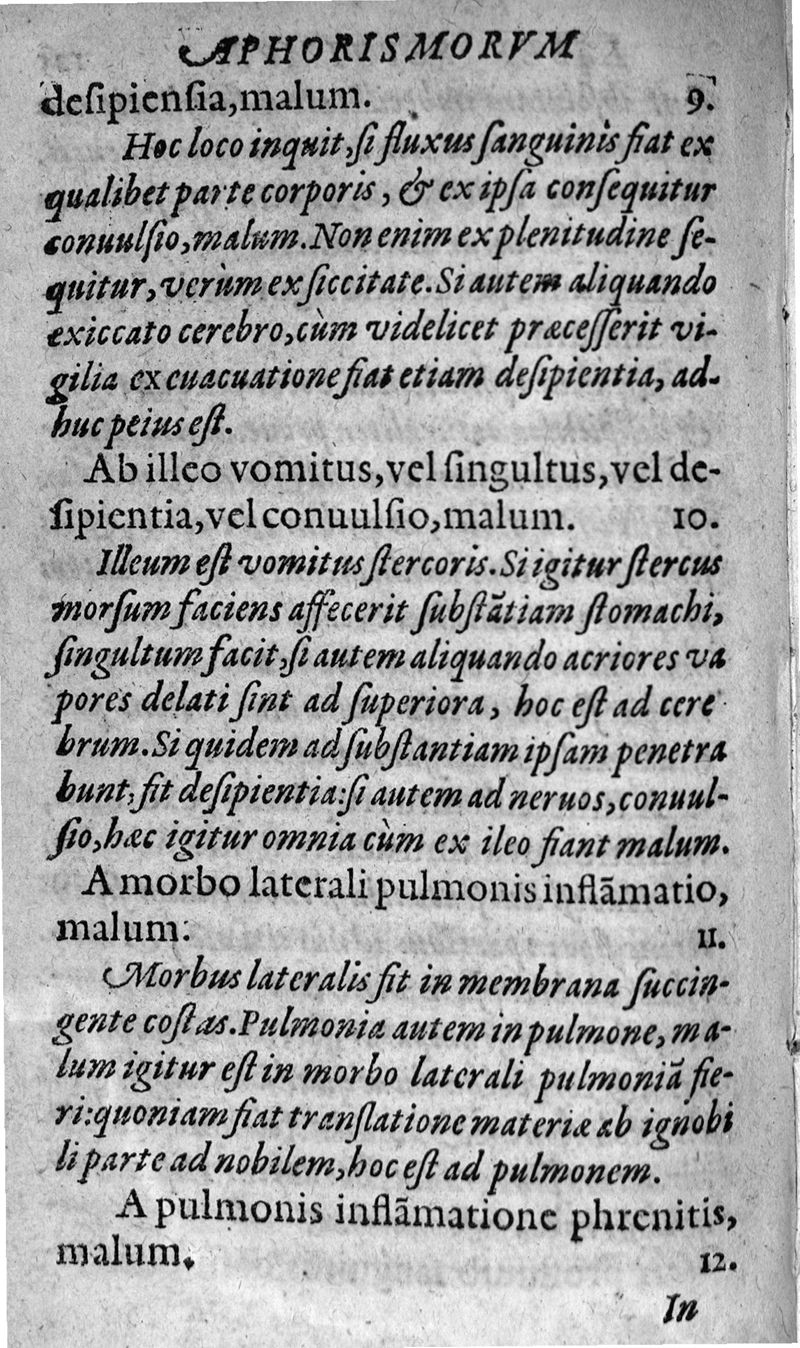 APHORISMORVM
deſipienſia, malum. 9.
Hoc loco inquit, ſi fluxus ſanguinis fiat ex
qualibet parte corporis, & ex ipſa conſequitur
conuulſio, malum. Non enim ex plenitudine ſe-
quitur, verùm ex ſiccitate. Si autem aliquando
exiccato cerebro, cùm videlicet præceſſerit vi-
gilia ex euacuatione fiat etiam deſipientia, ad-
huc peius eſt.
Ab illeo vomitus, vel ſingultus, vel de-
ſipientia, vel conuulſio, malum. 10.
Illeum eſt vomitus ſtercoris. Si igitur ſtercus
morſum faciens affecerit ſubſtãtiam ſtomachi,
ſingultum facit, ſi autem aliquando acriores va
pores delati ſint ad ſuperiora, hoc eſt ad cere
brum. Si quidem ad ſubſtantiam ipſam penetra
bunt, fit deſipientia: ſi autem ad neruos, conuul-
ſio, hæc igitur omnia cùm ex ileo fiant malum.
A morbo laterali pulmonis inflãmatio,
malum. 11.
Morbus lateralis fit in membrana ſuccin-
gente coſtas. Pulmonia autem in pulmone, ma-
lum igitur eſt in morbo laterali pulmoniã fie-
ri: quoniam fiat tranſlatione materiæ ab ignobi
li parte ad nobilem, hoc eſt ad pulmonem.
A pulmonis inflãmatione phrenitis,
malum. 12.
In